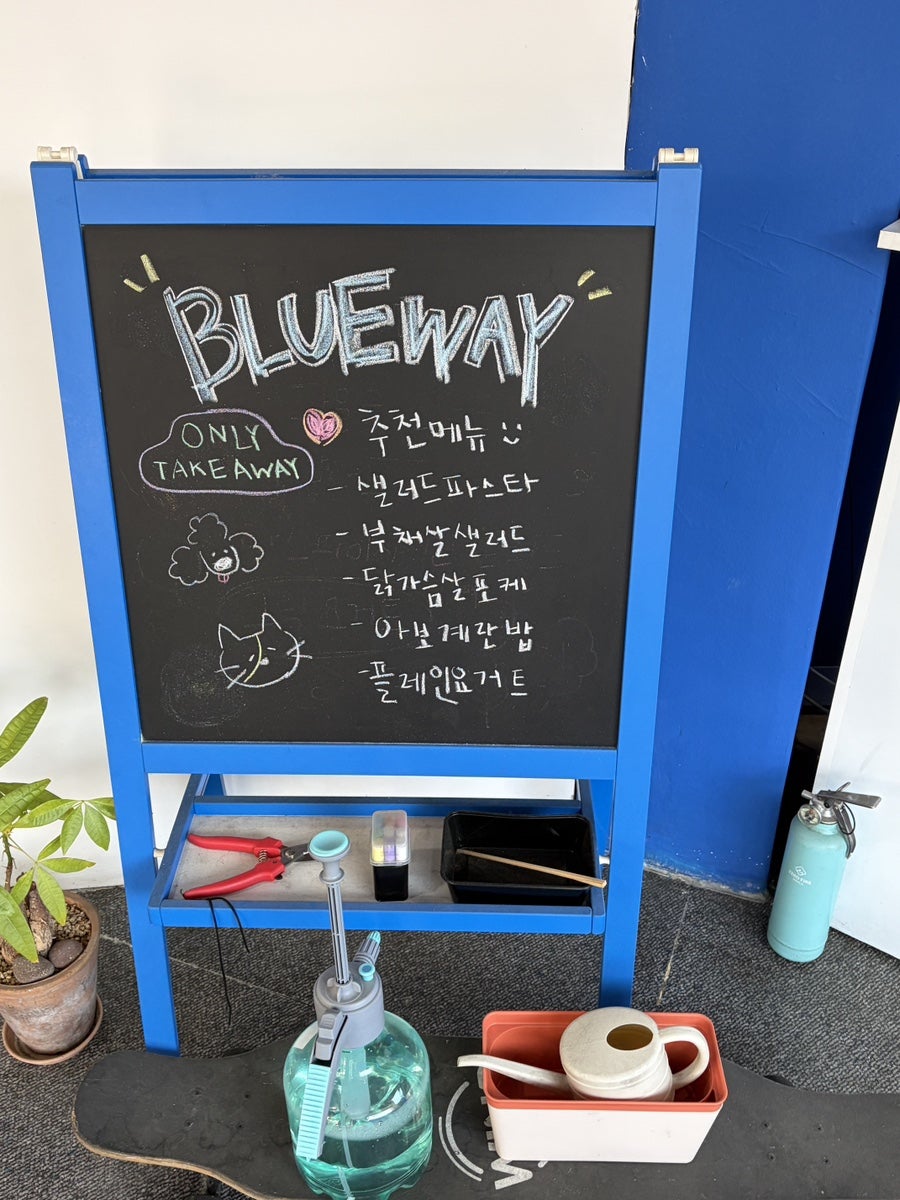 BLUEWAY
ONLY
TAKEAWAY
추천메뉴 :)
- 샐러드파스타
- 부채살샐러드
- 닭가슴살포케
- 아보계란밥
- 플레인요거트